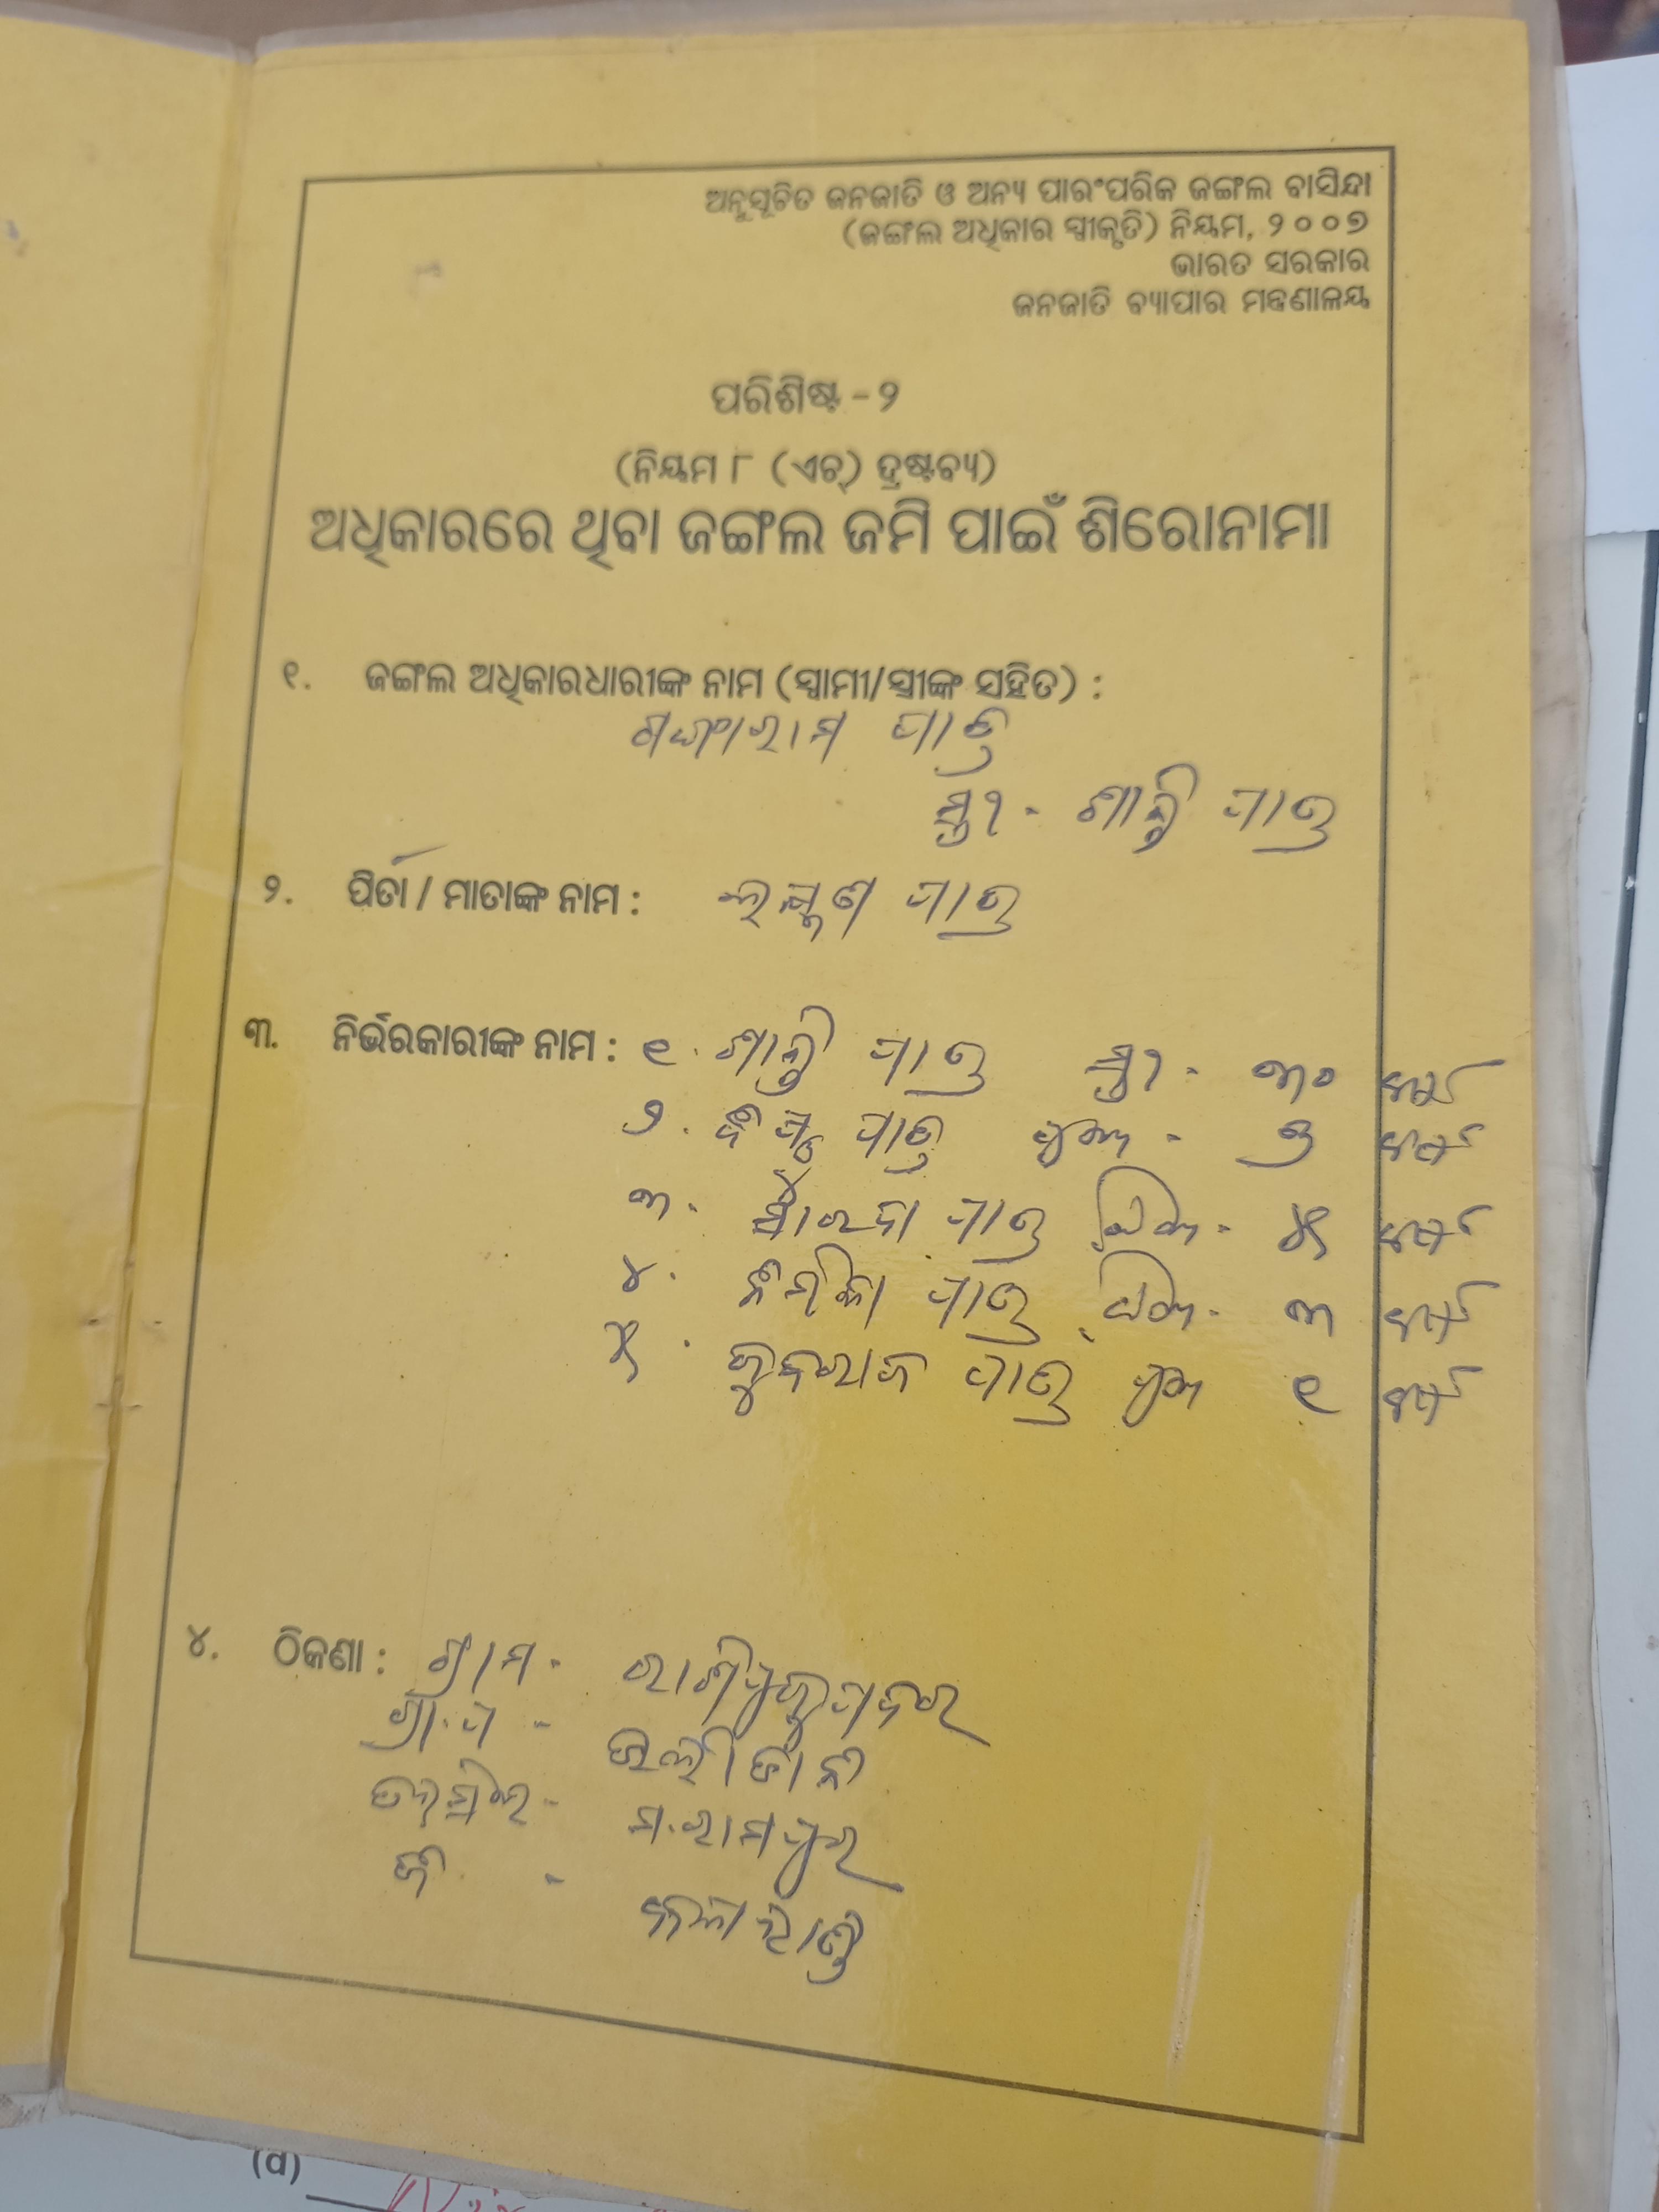 ଅନୁସୂଚିତ ଜନଜାତି ଓ ଅନ୍ୟ ପାରଂପରିକ ଜଙ୍ଗଲ ବାସିନ୍ଦା
(ଜଙ୍ଗଲ ଅଧିକାର ସ୍ୱୀକୃତି) ନିୟମ, ୨୦୦୭
ଭାରତ ସରକାର
ଜନଜାତି ବ୍ୟାପାର ମନ୍ତ୍ରଣାଳୟ
ପରିଶିଷ୍ଟ - ୨
(ନିୟମ ୮ (ଏଚ୍) ଦ୍ରଷ୍ଟବ୍ୟ)
ଅଧିକାରରେ ଥିବା ଜଙ୍ଗଲ ଜମି ପାଇଁ ଶିରୋନାମା
୧. ଜଙ୍ଗଲ ଅଧିକାରଧାରୀଙ୍କ ନାମ (ସ୍ୱାମୀ/ସ୍ତ୍ରୀଙ୍କ ସହିତ) :
ଗଙ୍ଗାରାମ ପାତ୍ର
ସ୍ତ୍ରୀ - ଶାନ୍ତି ପାତ୍ର
୨. ପିତା / ମାତାଙ୍କ ନାମ : ଲକ୍ଷ୍ମଣ ପାତ୍ର
୩. ନିର୍ଭରକାରୀଙ୍କ ନାମ : ୧. ଶାନ୍ତି ପାତ୍ର ସ୍ତ୍ରୀ - ୩୦ ବର୍ଷ
୨. ପାତ୍ର ପୁଅ - ୬ ବର୍ଷ
୩. ପାତ୍ର ଝିଅ - ୪ ବର୍ଷ
୪. ପାତ୍ର ଝିଅ - ୩ ବର୍ଷ
୫. ପାତ୍ର ପୁଅ ୧ ବର୍ଷ
୪. ଠିକଣା : ଗ୍ରାମ -
ଗ୍ରା.ପ -
ତହସିଲ - ମ.ରାମପୁର
ଜି - କଳାହାଣ୍ଡି
(d)